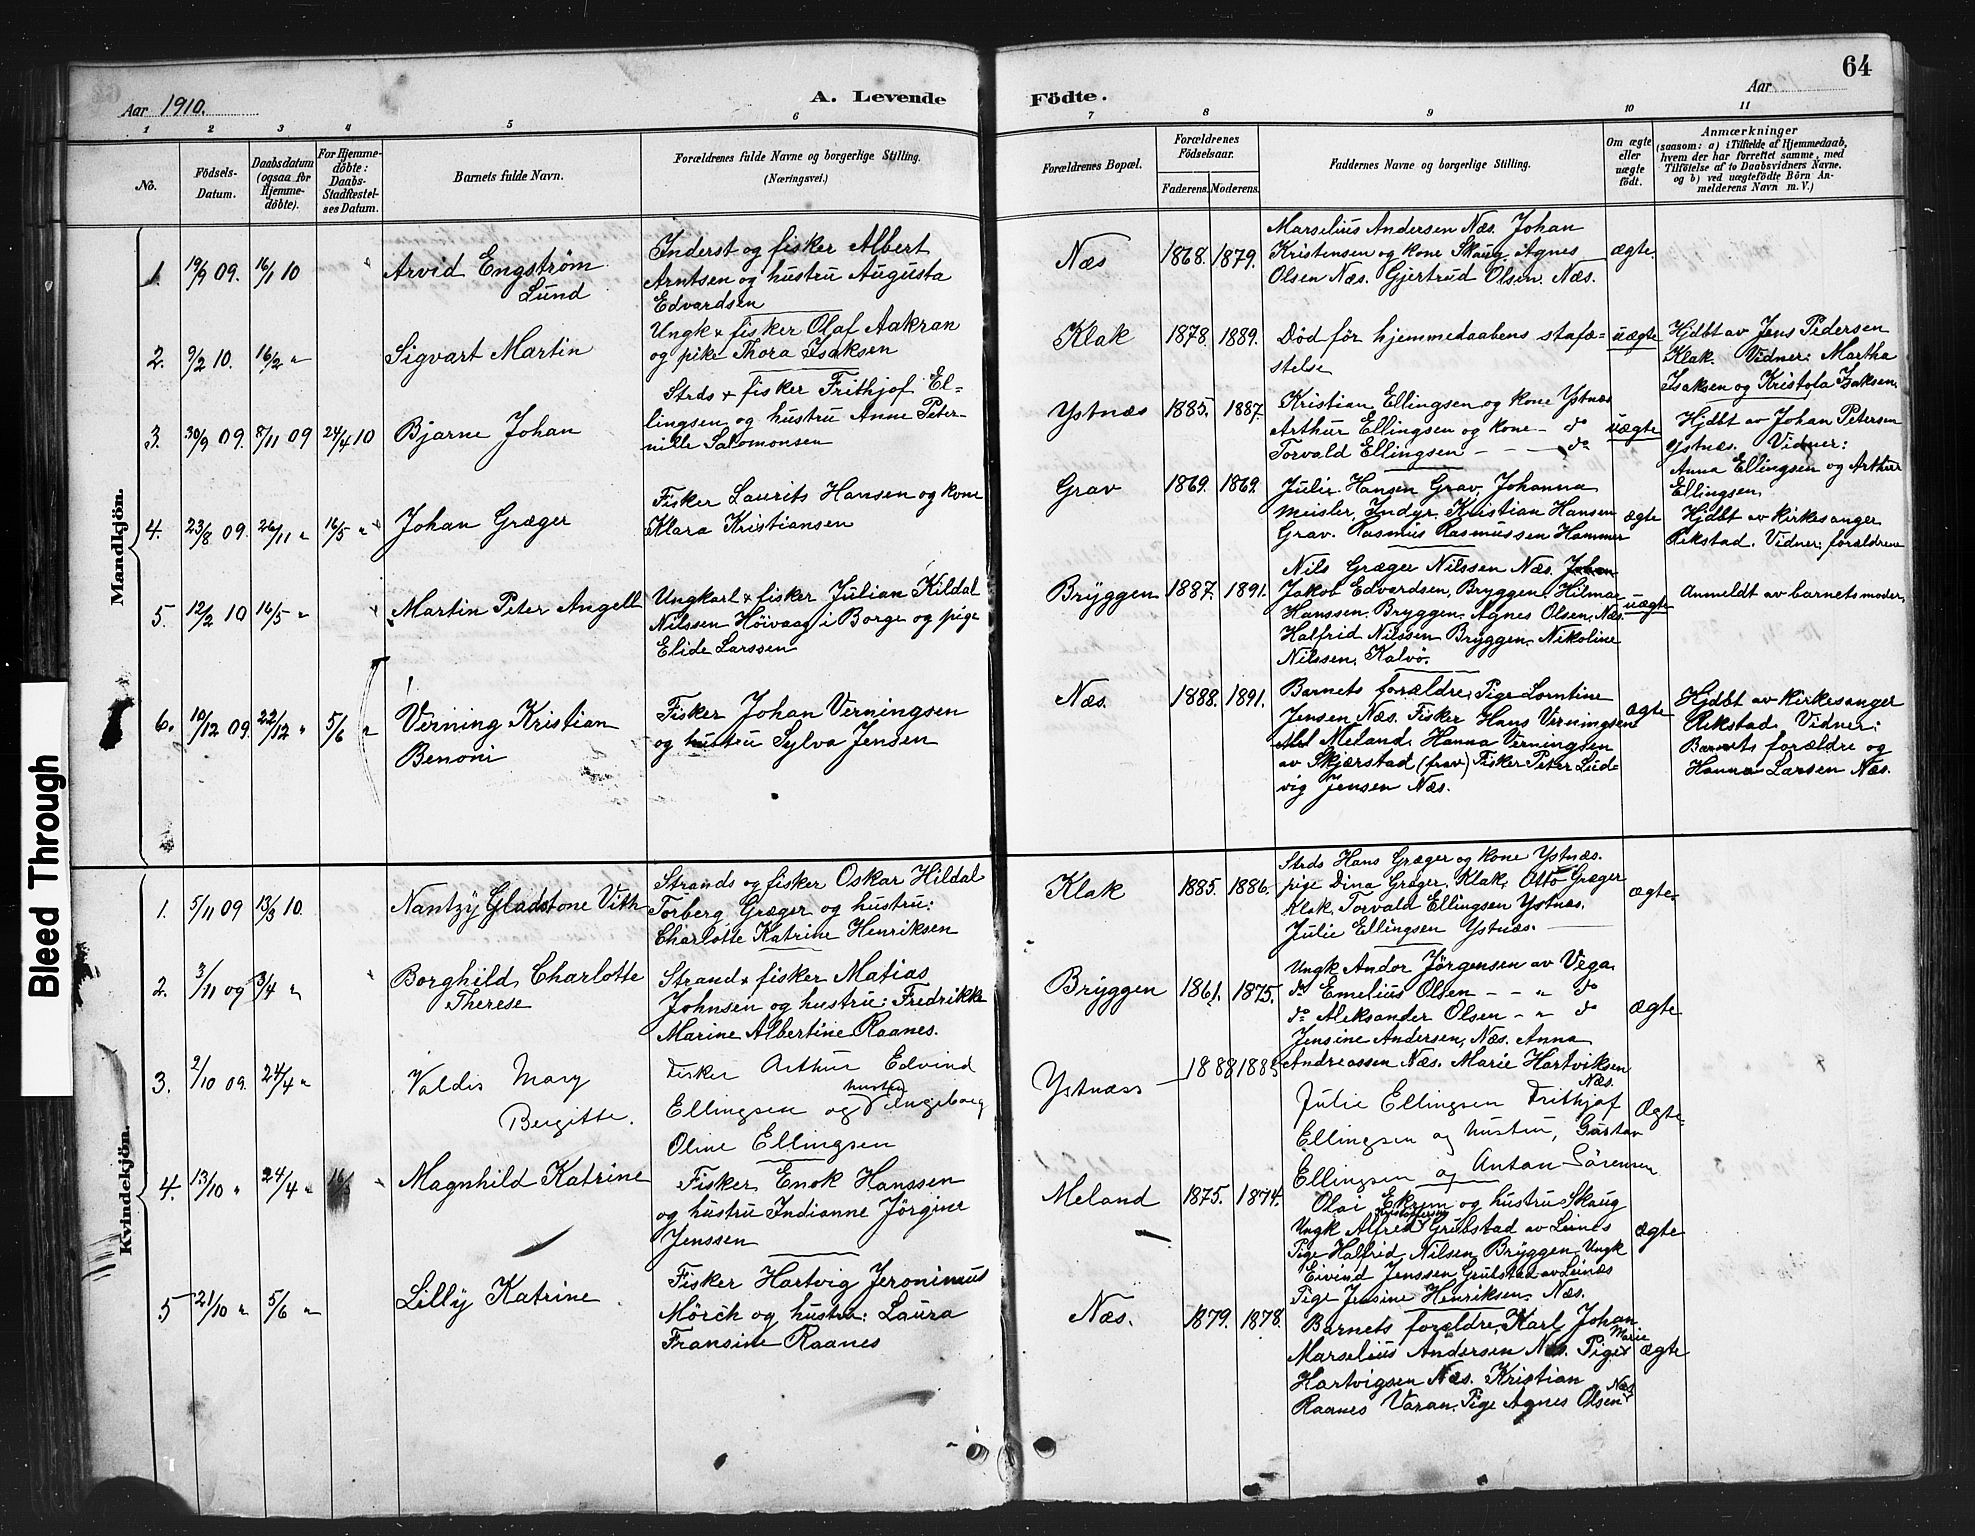 64
Aar 1910.
A. Levende Födte.
Aar
1 2 3 4 5 6 7 8 9 10 11
No.
Födsels-
Datum.
Daabsdatum
(ogsaa for
Hjemme-
döbte).
For Hjemme-
döbte:
Daabs-
Stadfæstel-
ses Datum.
Barnets fulde Navn.
Forældrenes fulde Navne og borgerlige Stilling.
(Næringsvei.)
Forældrenes Bopæl.
Forældrenes
Födselsaar.
Faderens. Moderens.
Faddernes Navne og borgerlige Stilling.
Om ægte
eller
uægte
födt.
Anmærkninger
(saasom: a) i Tilfælde af Hjemmedaab,
hvem der har forrettet samme, med
Tilföielse af to Daabsvidners Navne.
og b) ved uægtefödte Börn An-
melderens Navn m. V.)
Mandkjön.
1. 19/9 09. 16/1 10
Arvid Engström
Lund
Inderst og fisker Albert
Arntsen og hustru Augusta
Edvardsen
Næs 1868. 1879.
Marselius Andersen Næs. Johan
Kristensen og kone Skaug. Agnes
Olsen Næs. Gjertrud Olsen. Næs.
ægte.
2. 9/2 10. 16/2 "
Sigvart Martin
Ungk + fisker Olaf Aakran
og pike Thora Isaksen
Klak 1878. 1889.
Död før hjemmedaabens stafæ=
stelse
uægte
Hjdbt av Jens Pedersen
Klak. Vidner: Martha
Isaksen og Kristola Isaksen.
3. 30/9 09. 8/11 09 24/4 10
Bjarne Johan
Strds + fisker Frithjof El=
lingsen og hustru Anne Peter-
nille Salomonsen
Ystnæs 1885. 1887.
Kristian Ellingsen og kone Ystnæs
Arthur Ellingsen og kone - do
Torvald Ellingsen - - - do
uægte
Hjdbt av Johan Petersen
Ystnæs. Vidner:
Anna Ellingsen og Arthur
Ellingsen.
4. 23/8 09. 26/11 " 16/5 "
Johan Græger
Fisker Laurits Hansen og kone
Klara Kristiansen
Grav 1869. 1869.
Julie Hansen Grav, Johanna
Meisler, Indyr. Kristian Hansen
Grav. Rasmus Rasmussen Hammer
ægte
Hjdbt av kirkesanger
Rekstad. Vidner: forældrene
5. 12/2 10 16/5 "
Martin Peter Angell
Ungkarl + fisker Julian Kildal
Nilssen Höivaag i Borge og pige
Elide Larssen
Bryggen 1887. 1891.
Nils Græger Nilssen Næs. Johan
Jakob Edvardsen, Bryggen. Hilmar
Hanssen. Bryggen. Agnes Olsen. Næs.
Halfrid Nilssen Bryggen. Nikoline
Nilssen. Kalvö.
uægte
Anmeldt av barnets moder.
6. 10/12 09. 22/12 " 5/6 "
Verning Kristian
Benoni
Fisker Johan Verningsen
og hustru Sylva Jensen
Næs. 1888. 1891.
Barnets forældre, Pige Lorntine
Jensen Næs. Fisker Hans Verningsen
Meland. Hanna Verningsen
av Skjærstad (frav) Fisker Peter Lud=
vig Jensen Næs.
ægte
Hjdbt av Kirkesanger
Rekstad. Vidner:
Barnets forældre og
Hanna Larsen Næs.
Kvindekjön.
1. 5/11 09 13/3 10.
Nantzy Gladstone Vith
Strands og fisker Oskar Hildal
Torberg Græger og hustru:
Charlotte Katrine Henriksen
Klak 1885. 1886.
Strds Hans Græger og kone Ystnæs.
pige Dina Græger. Klak. Otto Græger
Klak. Torvald Ellingsen Ystnæs.
Julie Ellingsen Ystnæs.
ægte.
2. 3/11 09 3/4 "
Borghild Charlotte
Therese
Strand + fisker Matias
Johnsen og hustru: Fredrikke
Marine Albertine Raanes.
Bryggen 1861. 1875.
Ungk Andor Jörgensen av Vega.
do Emelius Olsen - - " do
do Aleksander Olsen - " do
Jensine Andersen, Næs. Anna
Andreassen Næs. Marie Hartviksen
Næs.
ægte
3. 2/10 09. 24/4 "
Valdis Mary
Bergitte.
Fisker Arthur Edvind
Ellingsen og hustru Ingeborg
Oline Ellingsen
Ystnæss 1888 1888
Julie Ellingsen Frithjof
Ellingsen og hustru, Gustav
Ellingsen og Anton Sörensen
Ægte
4. 13/10 " 24/4 " 16/5
Magnhild Katrine
Fisker Enok Hanssen
og hustru Indianne Jörgine
Jenssen
Meland 1875. 1874.
Olai Ekrem og hustru Skaug
Ungk Alfred Grubstad av Leines
Pige Halfrid Nilsen Bryggen Ungk
Eivind Jenssen Grubstad av Leines
Pige Jensine Henriksen. Næs.
ægte
5 21/10 " 5/6 "
Lilly Katrine
Fisker Hartvig Jeronimus
Mörch og hustru: Laura
Fransine Raanes
Næs. 1879. 1878.
Barnets forældre, Karl Johan
Marselius Andersen Næs. Pige Marie
Hartvigsen Næs. Kristian
Raanes Varan. Pige Agnes Olsen Næs
ægte
Bleed Through